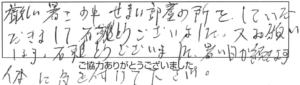 厳しい暑さの中せまい部屋の所を、していた
だきまして有難うございました。又お願い
します。有難うございました。暑い日が続きます
ご協力ありがとうございました。
体に気を付けて下さい。